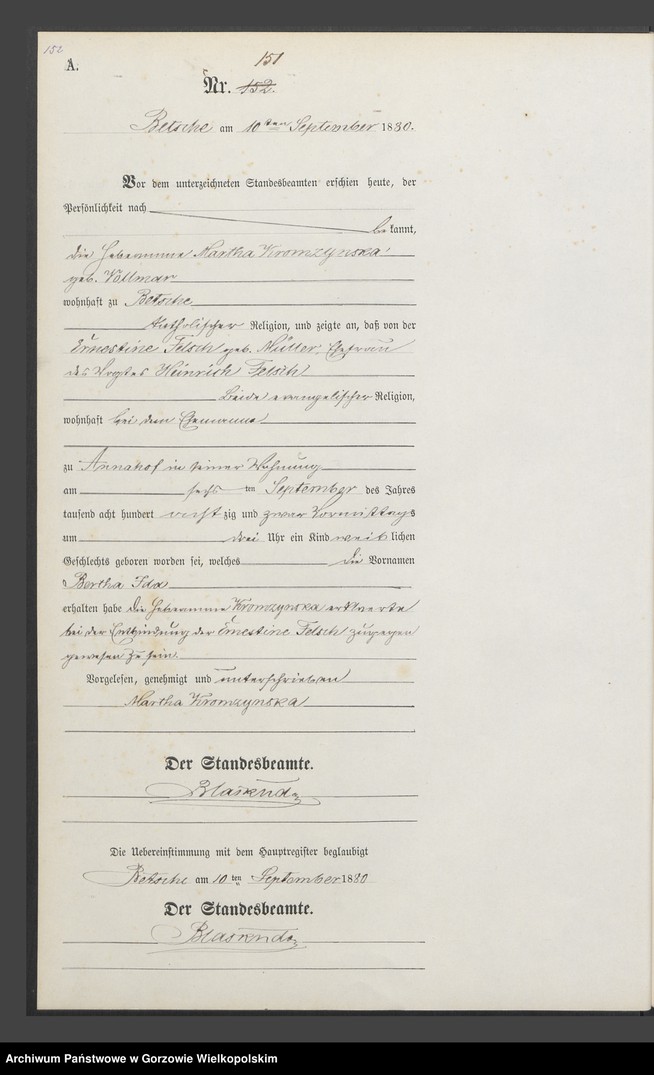 152
A.
151
Nr. 152.
Betsche am 10ten September 1880.
Vor dem unterzeichneten Standesbeamten erschien heute, der
Persönlichkeit nach
bekannt,
die Hebeamme Martha Kromzynska
geb. Vollmar
wohnhaft zu Betsche
katholischer Religion, und zeigte an, daß von der
Ernestine Felsch geb. Müller, Ehefrau
des Vogtes Heinrich Felsch
beide evangelischer Religion,
wohnhaft bei dem Ehemanne
zu Annahof in seiner Wohnung
am sechsten September des Jahres
tausend acht hundert achtzig und zwar Vormittags
um drei Uhr ein Kind weiblichen
Geschlechts geboren worden sei, welches die Vornamen
Bertha Ida
erhalten habe die Hebeamme Kromzynska erklaerte
bei der Entbindung der Ernestine Felsch zugegen
gewesen zu sein.
Vorgelesen, genehmigt und unterschrieben
Martha Kromzynska
Der Standesbeamte.
Die Uebereinstimmung mit dem Hauptregister beglaubigt
Betsche am 10ten September 1880
Der Standesbeamte.
Archiwum Państwowe w Gorzowie Wielkopolskim